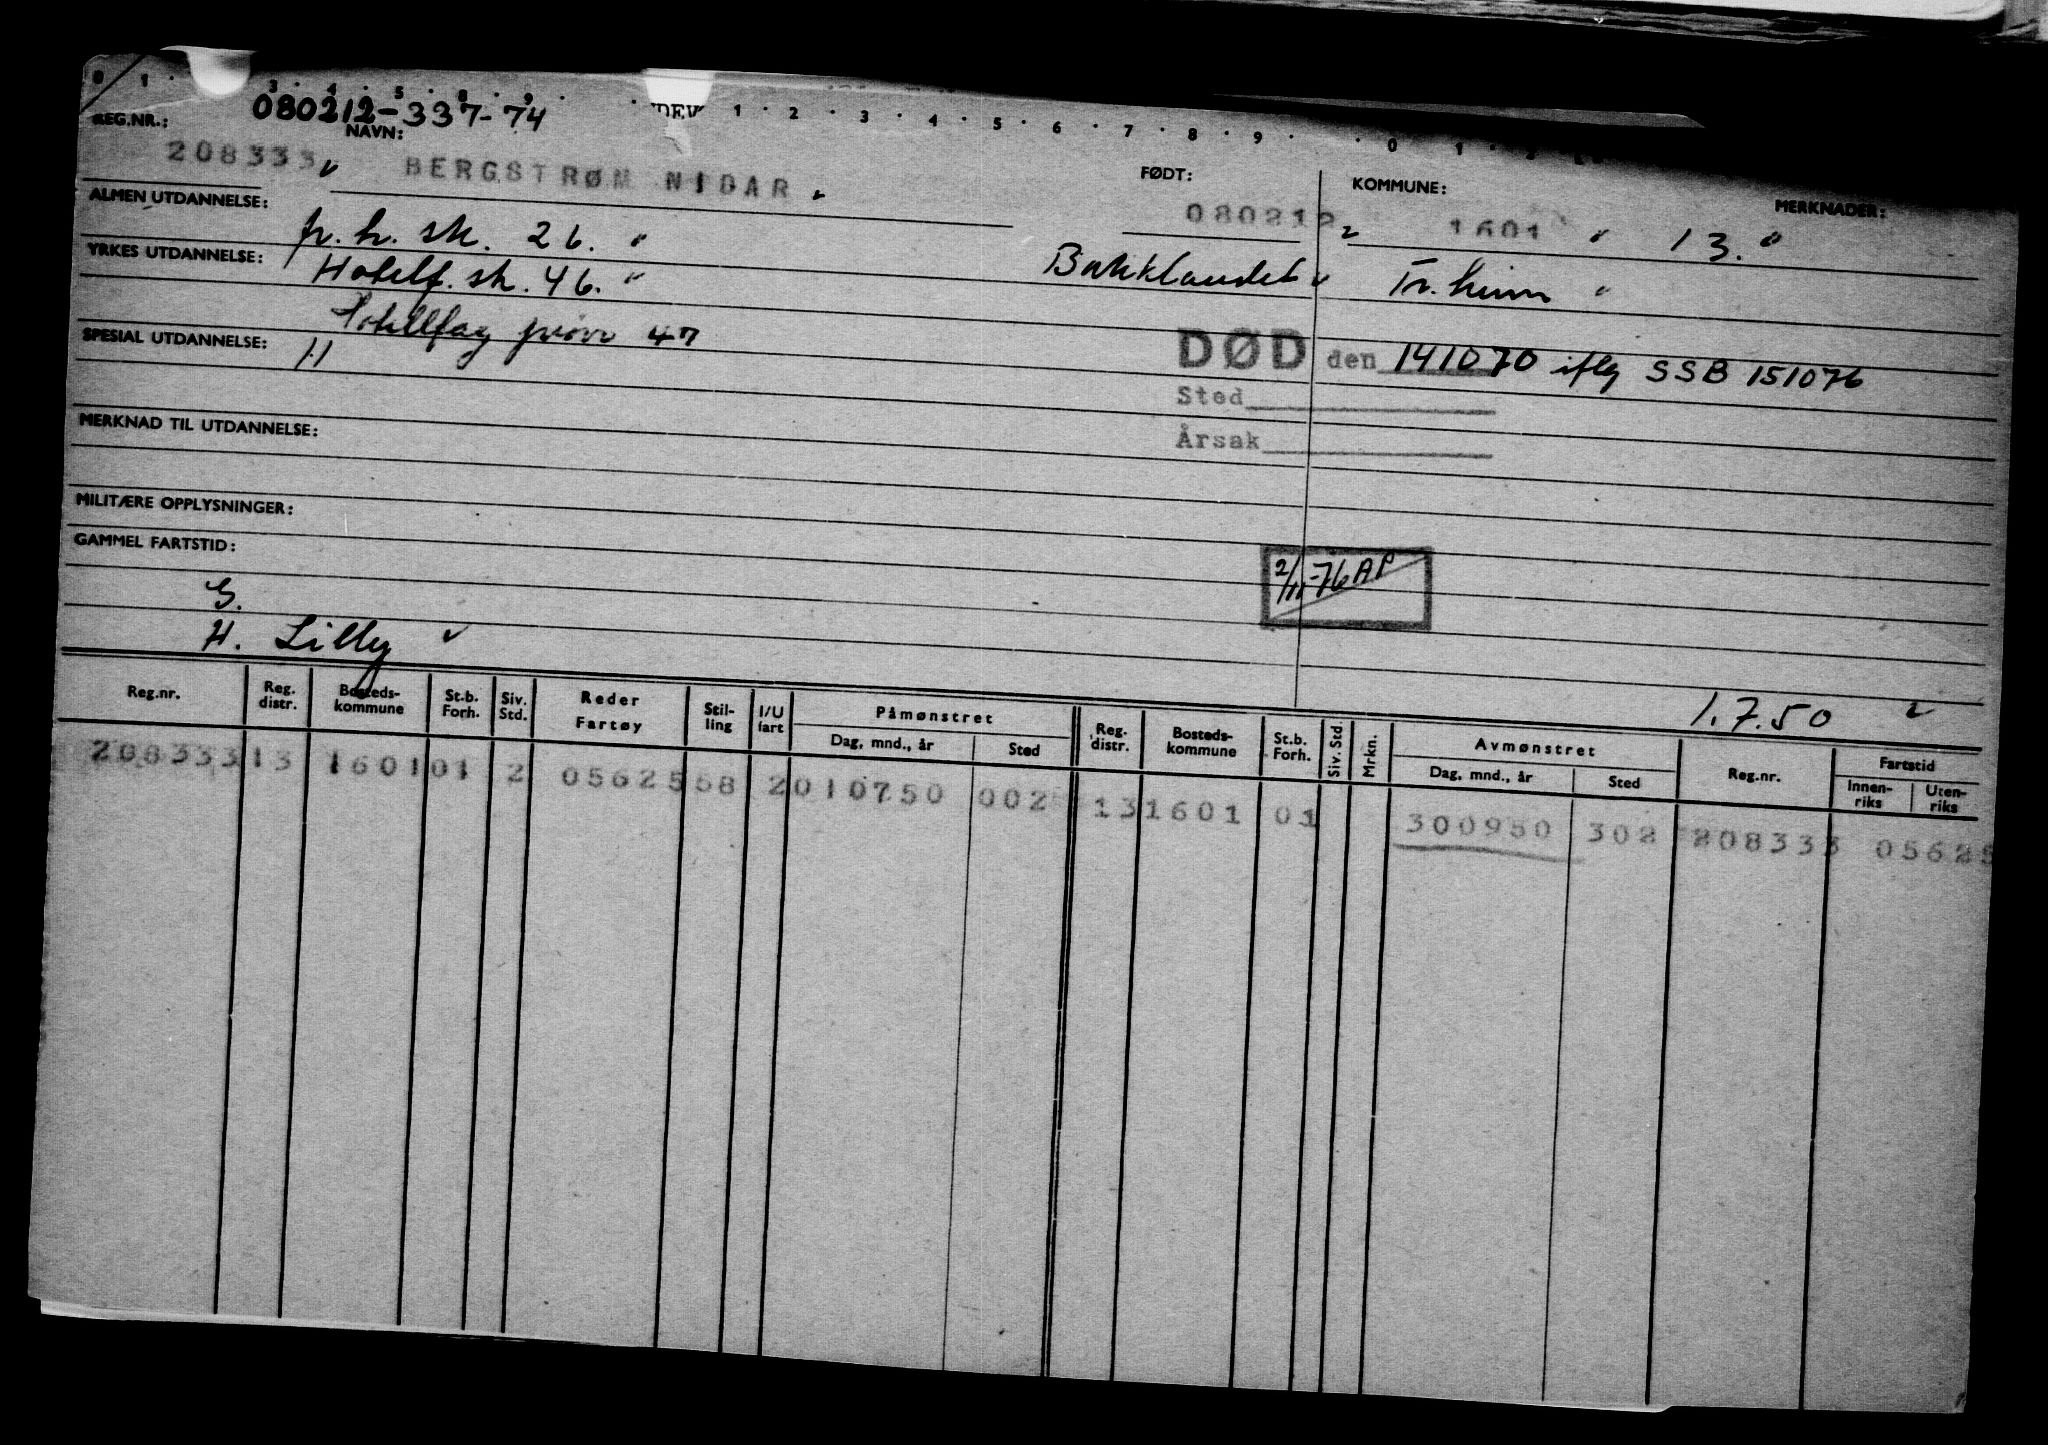 0 1 3 4 5 8 9 1 2 3 4 5 6 7 8 9 0 1 2
080212-337-74
REG.NR.: NAVN: FØDT: KOMMUNE: MERKNADER:
208333 BERGSTRØM NIDAR 080212 1601 13.
ALMEN UTDANNELSE: fr. h. sk. 26.
YRKES UTDANNELSE: Hotelf. sk. 46. Bakklandet Tr.heim
Hotellfag prøve 47
SPESIAL UTDANNELSE: H
DØD den 141070 iflg SSB 151076
Sted
Årsak
MERKNAD TIL UTDANNELSE:
MILITÆRE OPPLYSNINGER:
GAMMEL FARTSTID:
2/11-76 AP
G.
H. Lilly
1.7.50
Reg.nr. Reg. distr. Bosteds-kommune St.b. Forh. Siv. Std. Reder Fartøy Stil-ling I/U fart Påmønstret Dag, mnd., år Sted Reg. distr. Bosteds-kommune St.b. Forh. Siv. Std. Mrkn. Avmønstret Dag, mnd., år Sted Reg.nr. Fartstid Innen-riks Uten-riks
208333 13 1601 01 2 05625 58 2 010750 002 13 1601 01 300950 302 208333 05625